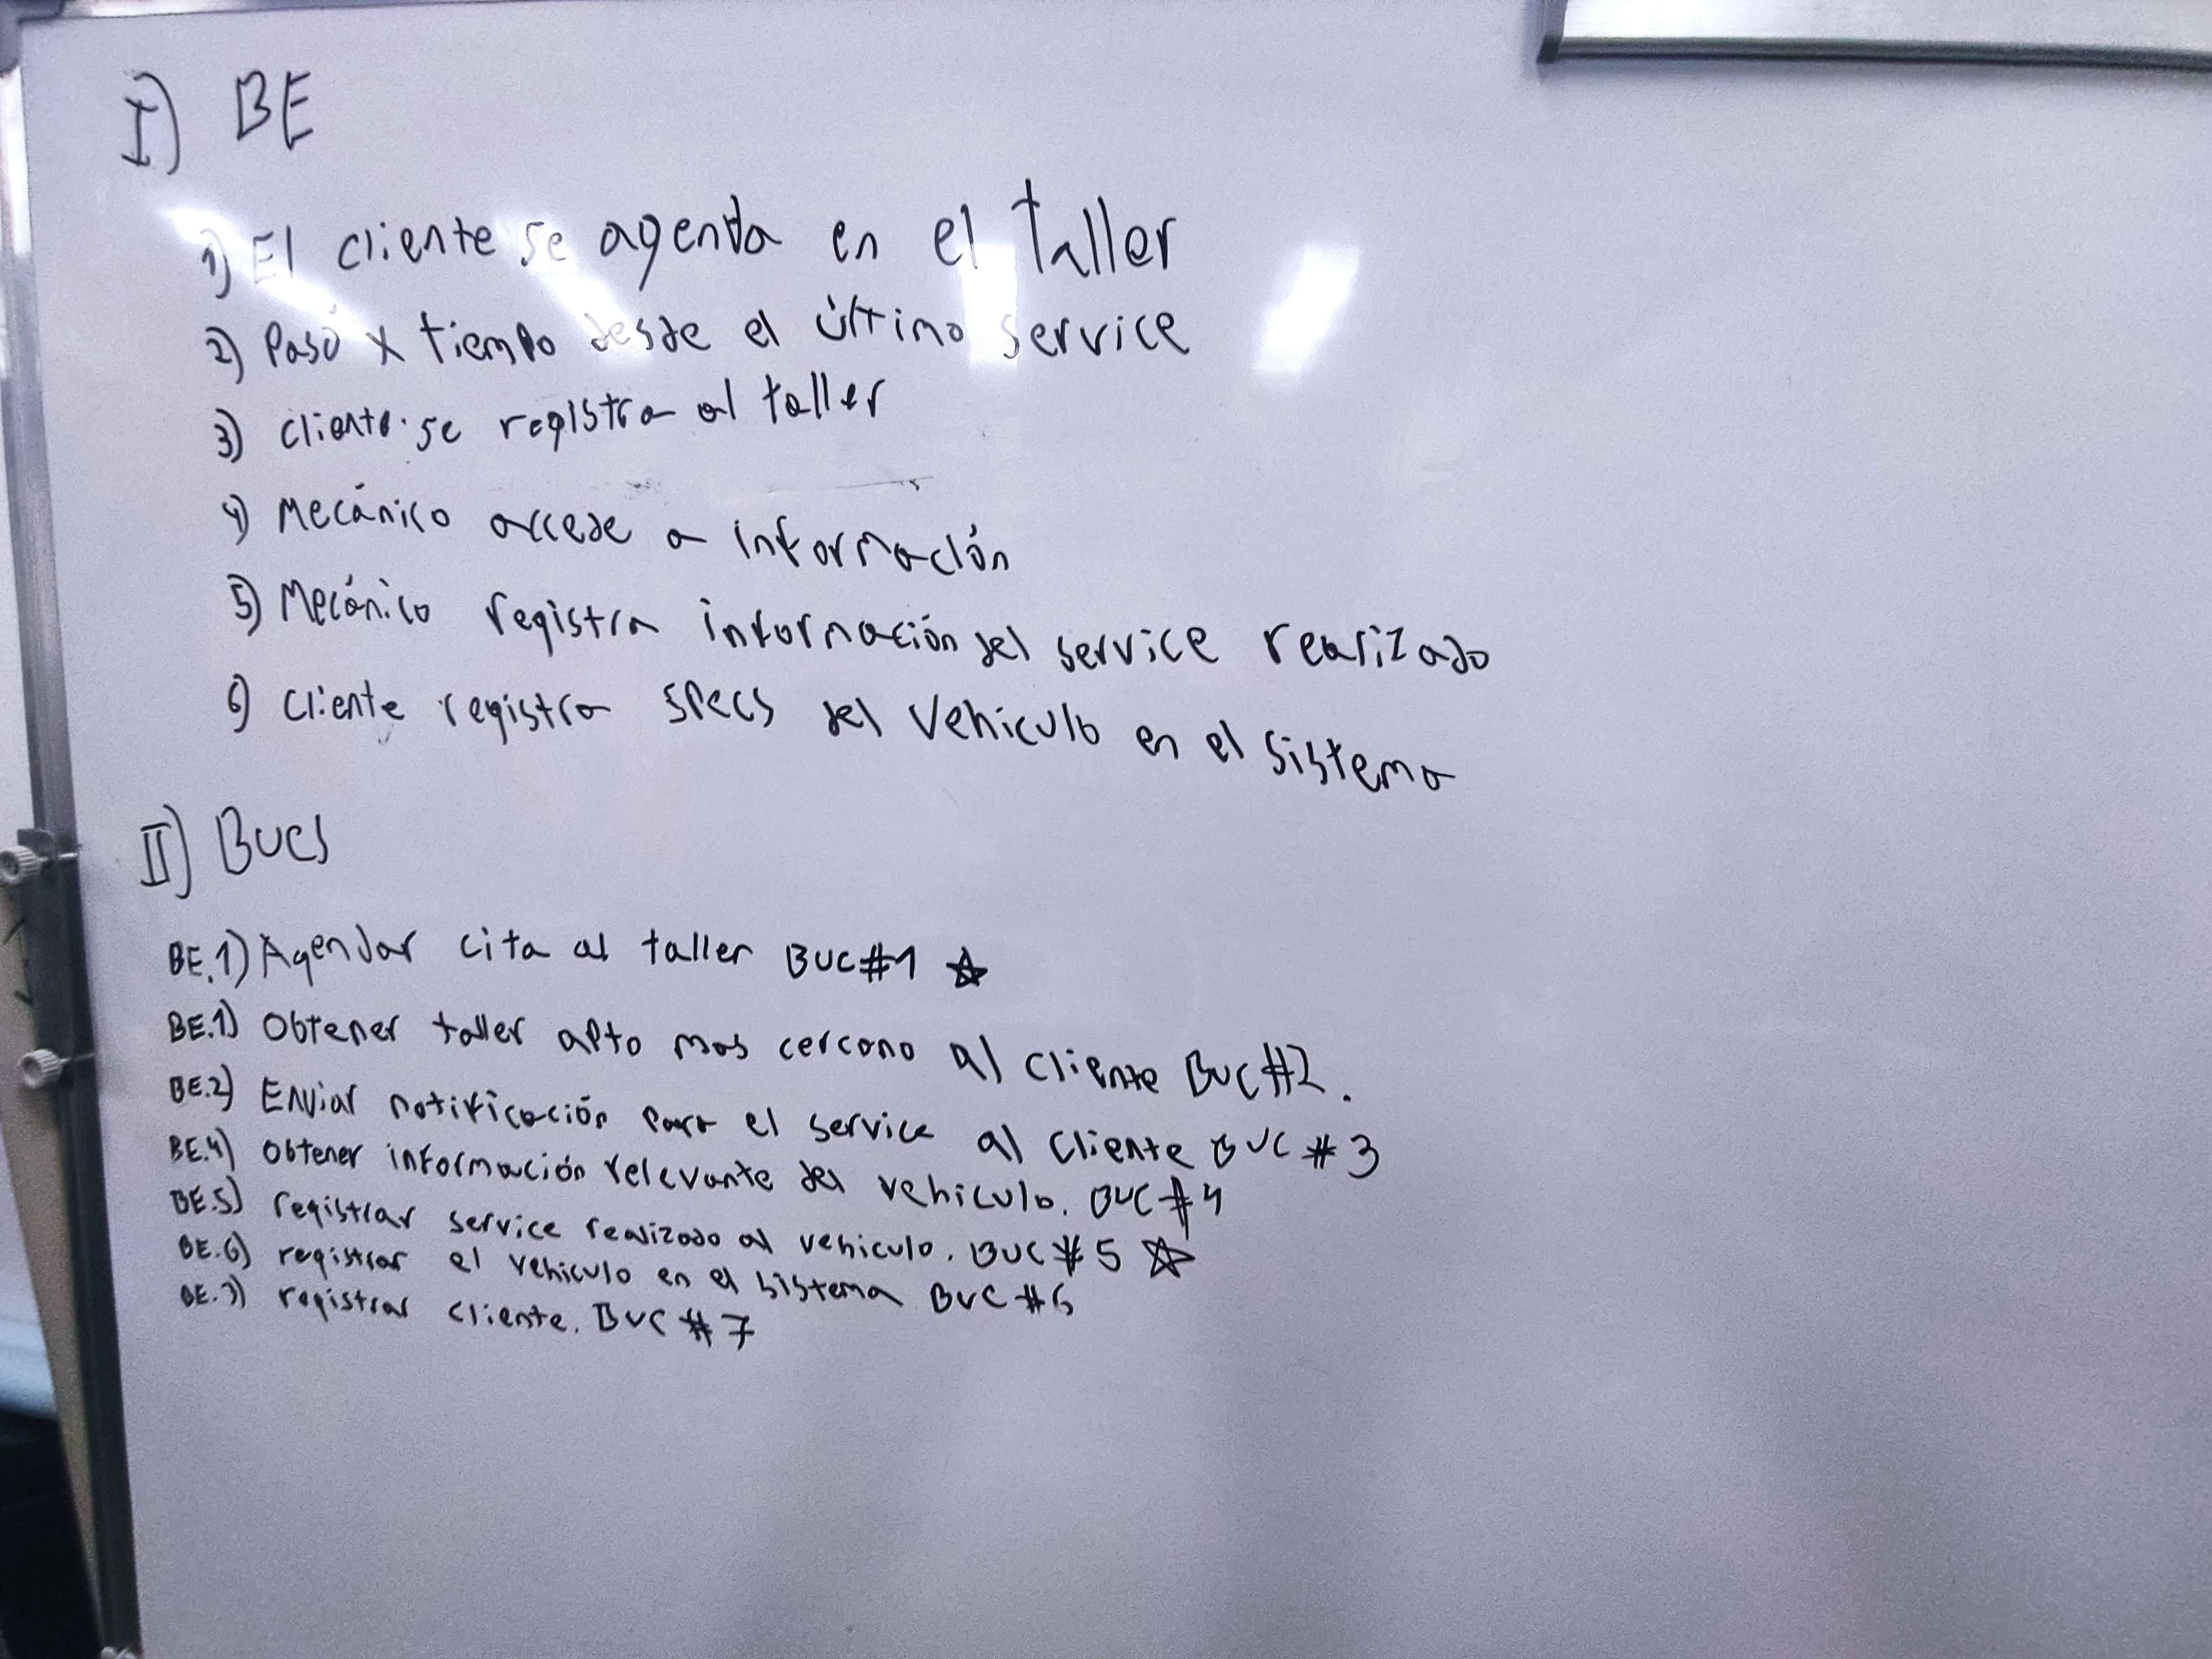 I) BE
1) El cliente se agenda en el taller
2) Pasó x tiempo desde el último service
3) cliente se registra al taller
4) Mecánico accede a información
5) Mecánico registra información del service realizado
6) cliente registra specs del vehiculo en el sistema
II) BUCs
BE.1) Agendar cita al taller BUC#1 ☆
BE.1) Obtener taller apto mas cercano al cliente BUC#2.
BE.2) Enviar notificación para el service al cliente BUC #3
BE.4) Obtener información relevante del vehiculo. BUC #4
BE.5) registrar service realizado al vehiculo. BUC #5 ☆
BE.6) registrar el vehiculo en el sistema BUC #6
BE.3) registrar cliente. BUC #7